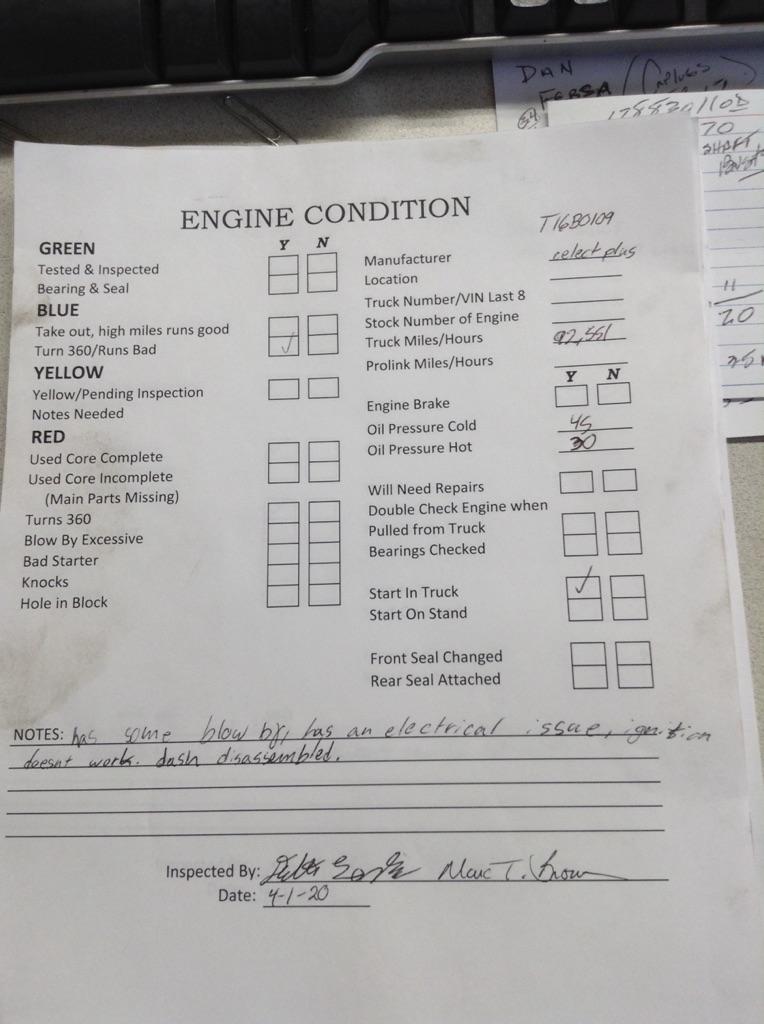 DAN
ENGINE CONDITION
T16B0109
Y N
GREEN
Tested & Inspected
Bearing & Seal
BLUE
Take out, high miles runs good
Turn 360/Runs Bad
YELLOW
Yellow/Pending Inspection
Notes Needed
RED
Used Core Complete
Used Core Incomplete
(Main Parts Missing)
Turns 360
Blow By Excessive
Bad Starter
Knocks
Hole in Block
Manufacturer celect plus
Location
Truck Number/VIN Last 8
Stock Number of Engine
Truck Miles/Hours 92,551
Prolink Miles/Hours
Y N
Engine Brake
Oil Pressure Cold 45
Oil Pressure Hot 30
Will Need Repairs
Double Check Engine when
Pulled from Truck
Bearings Checked
Start In Truck
Start On Stand
Front Seal Changed
Rear Seal Attached
NOTES: has some blow by, has an electrical issue, ignition
doesnt work. dash disassembled.
Inspected By: Marc T. Brown
Date: 4-1-20
70
SHAFT
11
20